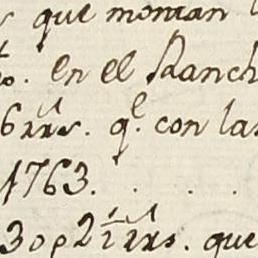 que montan
en el Ranch
6 rr.s q.e con las
1763. . . .
30 p 2 1/2 rr.s que